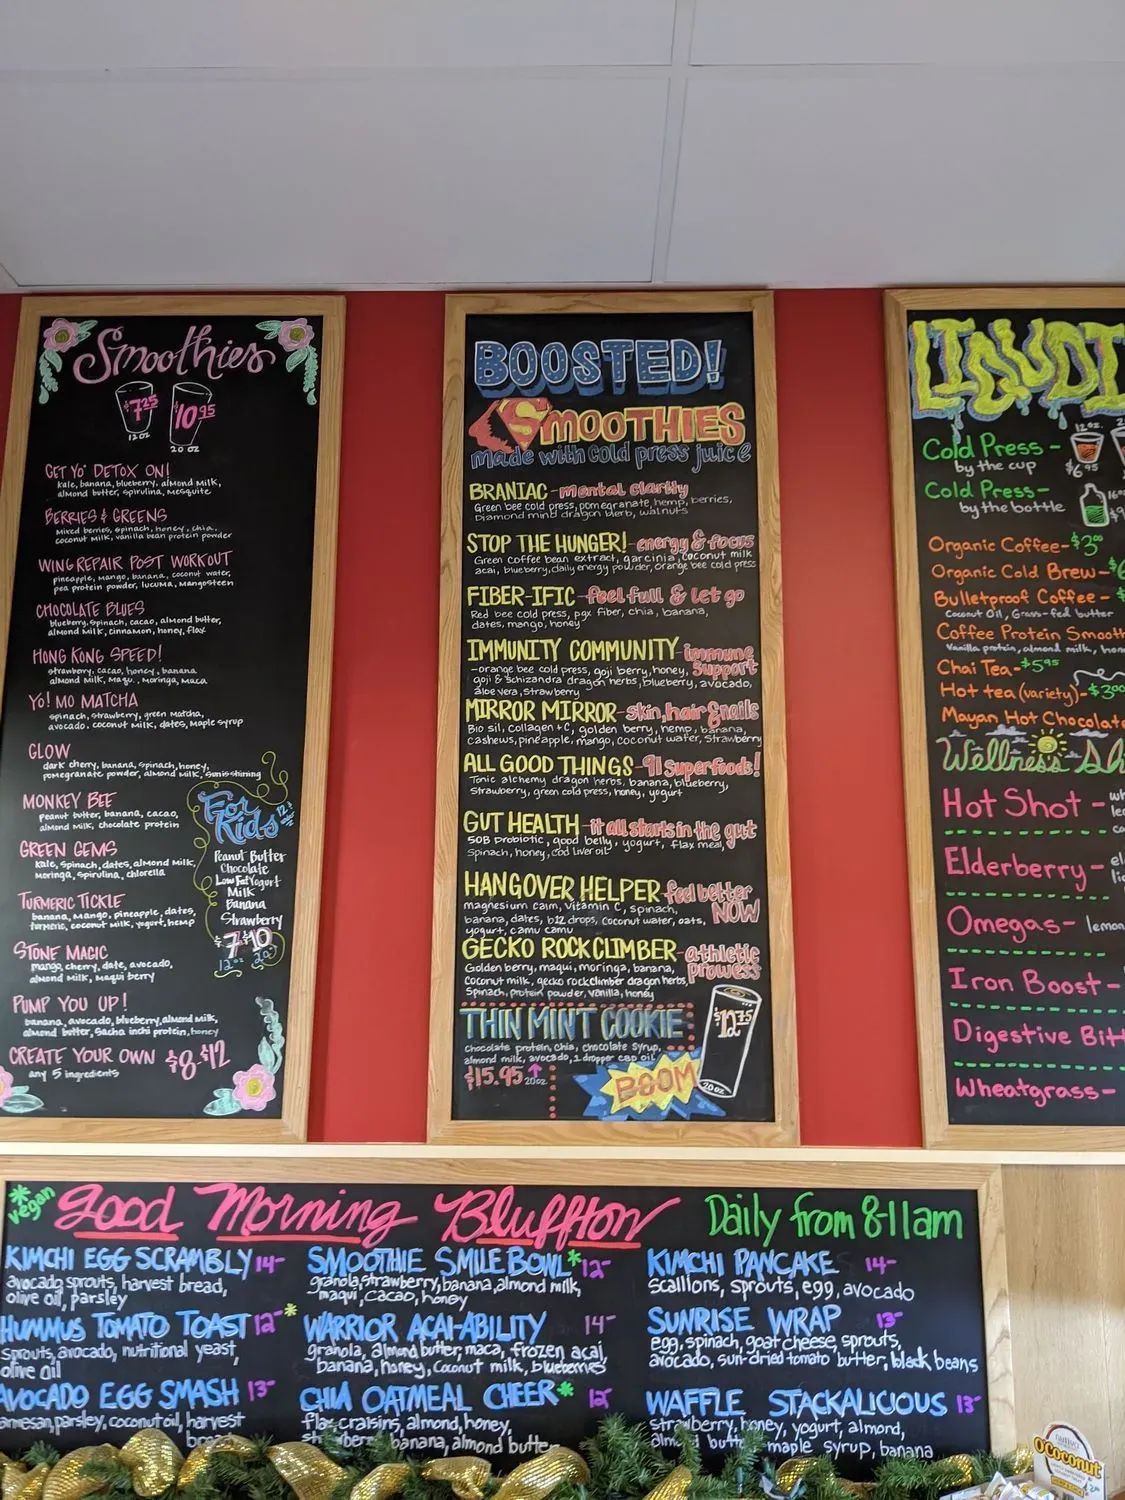 Smoothies
$7.25
12 oz
$10.95
20 oz
GET YO' DETOX ON!
kale, banana, blueberry, almond milk,
almond butter, spirulina, mesquite
BERRIES & GREENS
mixed berries, spinach, honey, chia,
coconut milk, vanilla bean protein powder
WING REPAIR POST WORKOUT
pineapple, mango, banana, coconut water,
pea protein powder, lucuma, mangosteen
CHOCOLATE BLUES
blueberry, spinach, cacao, almond butter,
almond milk, cinnamon, honey, flax
HONG KONG SPEED!
strawberry, cacao, honey, banana
almond milk, maqui, moringa, maca
YO! MO MATCHA
spinach, strawberry, green matcha,
avocado, coconut milk, dates, maple syrup
GLOW
dark cherry, banana, spinach, honey,
pomegranate powder, almond milk,
MONKEY BEE
peanut butter, banana, cacao,
almond milk, chocolate protein
GREEN GEMS
kale, spinach, dates, almond milk,
moringa, spirulina, chlorella
TURMERIC TICKLE
banana, mango, pineapple, dates,
turmeric, coconut milk, yogurt, hemp
STONE MAGIC
mango, cherry, date, avocado,
almond milk, maqui berry
PUMP YOU UP!
banana, avocado, blueberry, almond milk,
almond butter, sacha inchi protein, honey
CREATE YOUR OWN $8-$12
any 5 ingredients
For
Kids
Peanut Butter
Chocolate
Low Fat Yogurt
Milk
Banana
Strawberry
$7 $10
12oz 20oz
BOOSTED!
SMOOTHIES
made with cold press juice
BRANIAC - mental clarity
Green bee cold press, pomegranate, hemp, berries,
Diamond mind dragon herb, walnuts
STOP THE HUNGER! - energy & focus
Green coffee bean extract, garcinia, coconut milk
acai, blueberry, daily energy powder, orange bee cold press
FIBER-IFIC - feel full & let go
Red bee cold press, pgx fiber, chia, banana,
dates, mango, honey
IMMUNITY COMMUNITY - immune
support
- orange bee cold press, goji berry, honey,
goji & schizandra dragon herbs, blueberry, avocado,
aloe vera, strawberry
MIRROR MIRROR - skin, hair & nails
Bio sil, collagen + C, golden berry, hemp, banana,
cashews, pineapple, mango, coconut water, strawberry
ALL GOOD THINGS - 91 superfoods!
Tonic alchemy dragon herbs, banana, blueberry,
strawberry, green cold press, honey, yogurt
GUT HEALTH - it all starts in the gut
50B probiotic, good belly, yogurt, flax meal,
spinach, honey, cod liver oil
HANGOVER HELPER - feel better
NOW
magnesium calm, vitamin C, spinach,
banana, dates, b12 drops, coconut water, oats,
yogurt, camu camu
GECKO ROCK CLIMBER - athletic
prowess
Golden berry, maqui, moringa, banana,
coconut milk, gecko rockclimber dragon herbs,
spinach, protein powder, vanilla, honey
THIN MINT COOKIE
chocolate protein, chia, chocolate syrup,
almond milk, avocado, 1 dropper CBD oil
$15.95 20oz
BOOM
$12.75
20oz
LIQUDI
12oz.
Cold Press -
by the cup
$6.95
Cold Press -
by the bottle
Organic Coffee - $3.00
Organic Cold Brew -
Bulletproof Coffee -
Coconut Oil, Grass-fed butter
Coffee Protein Smooth
Vanilla protein, almond milk,
Chai Tea - $5.95
Hot tea (variety) - $3.00
Mayan Hot Chocolate
Wellness Sh
Hot Shot -
Elderberry -
Omegas - lemon
Iron Boost -
Digestive Bitt
Wheatgrass -
*vegan
Good Morning Bluffton
Daily from 8-11am
KIMCHI EGG SCRAMBLY 14-
avocado, sprouts, harvest bread,
olive oil, parsley
HUMMUS TOMATO TOAST 12-*
sprouts, avocado, nutritional yeast,
olive oil
AVOCADO EGG SMASH 13-
parmesan, parsley, coconut oil, harvest
bread
SMOOTHIE SMILE BOWL* 12-
granola, strawberry, banana, almond milk,
maqui, cacao, honey
WARRIOR ACAI-ABILITY 14-
granola, almond butter, maca, frozen acai,
banana, honey, coconut milk, blueberries
CHIA OATMEAL CHEER* 12
flax, craisins, almond, honey,
strawberry, banana, almond butter
KIMCHI PANCAKE 14-
scallions, sprouts, egg, avocado
SUNRISE WRAP 13-
egg, spinach, goat cheese, sprouts,
avocado, sun-dried tomato butter, black beans
WAFFLE STACKALICIOUS 13-
strawberry, honey, yogurt, almond,
almond butter, maple syrup, banana
OCOCONUT